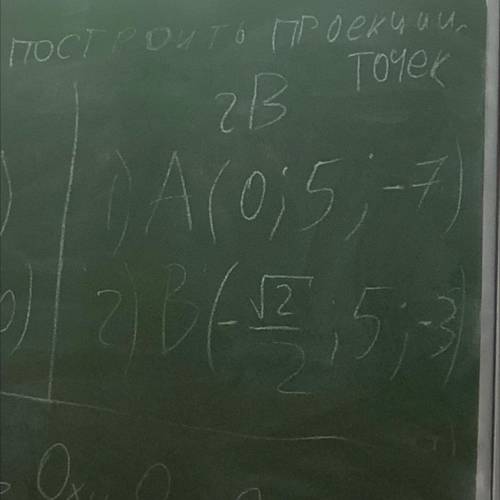 ПОСТРОИТЬ ПРОЕКЦИИ
ТОЧЕК
2В
1) A(0; 5; -7)
2) B(-√2/2; 5; -3)